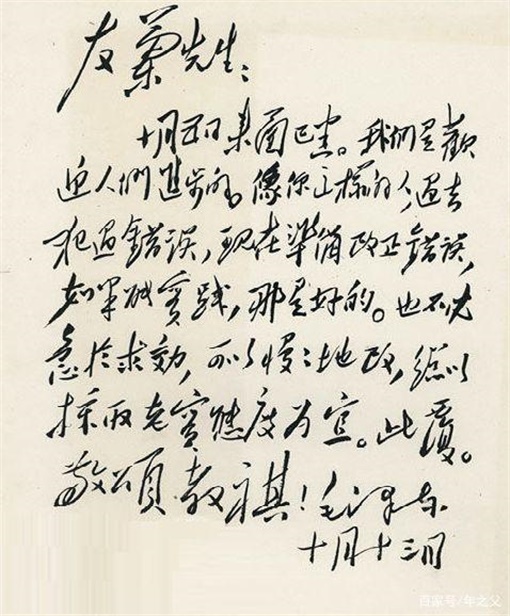 友兰先生：
十月五日来函已悉。我们是欢
迎人们进步的。像你这样的人，过去
犯过错误，现在准备改正错误，
如果能实践，那是好的。也不必
急于求效，可以慢慢地改，总以
采取老实态度为宜。此复。
敬颂教祺！毛泽东
十月十三日
百家号/年之父